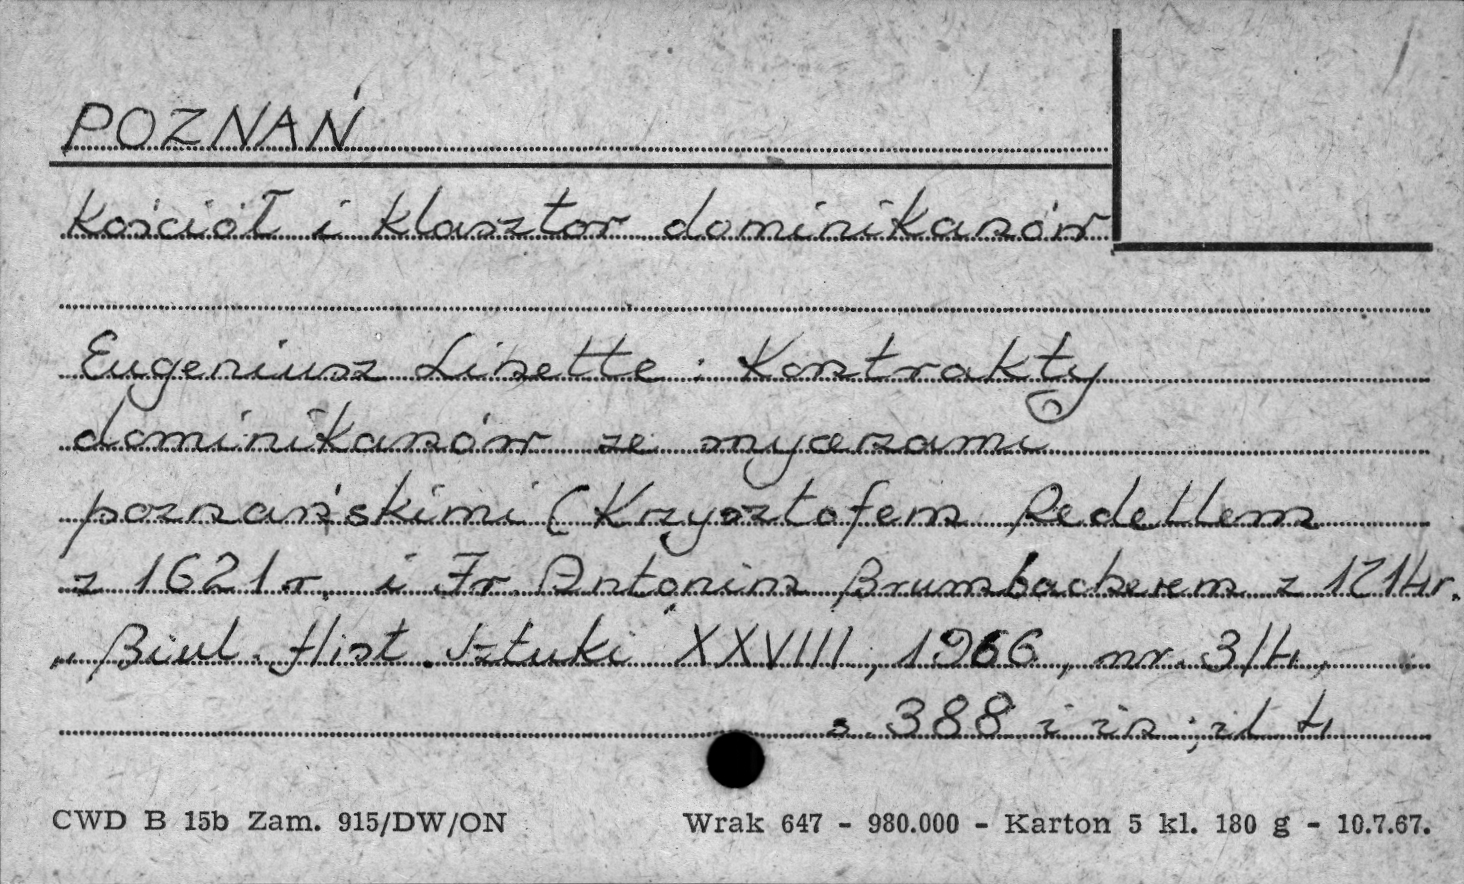 POZNAŃ
Kościół i klasztor dominikanów
Eugeniusz Linette : Kontrakty
dominikanów ze snycerzami
poznańskimi (Krzysztofem Redellem
z 1621 r. i Fr. Antonim Brumbacherem z 1714r.
„Biul. Hist. Sztuki XXVIII, 1966, nr. 3/4,
s. 388 i in ; il 4
CWD B 15b Zam. 915/DW/ON Wrak 647 - 980.000 - Karton 5 kl. 180 g - 10.7.67.